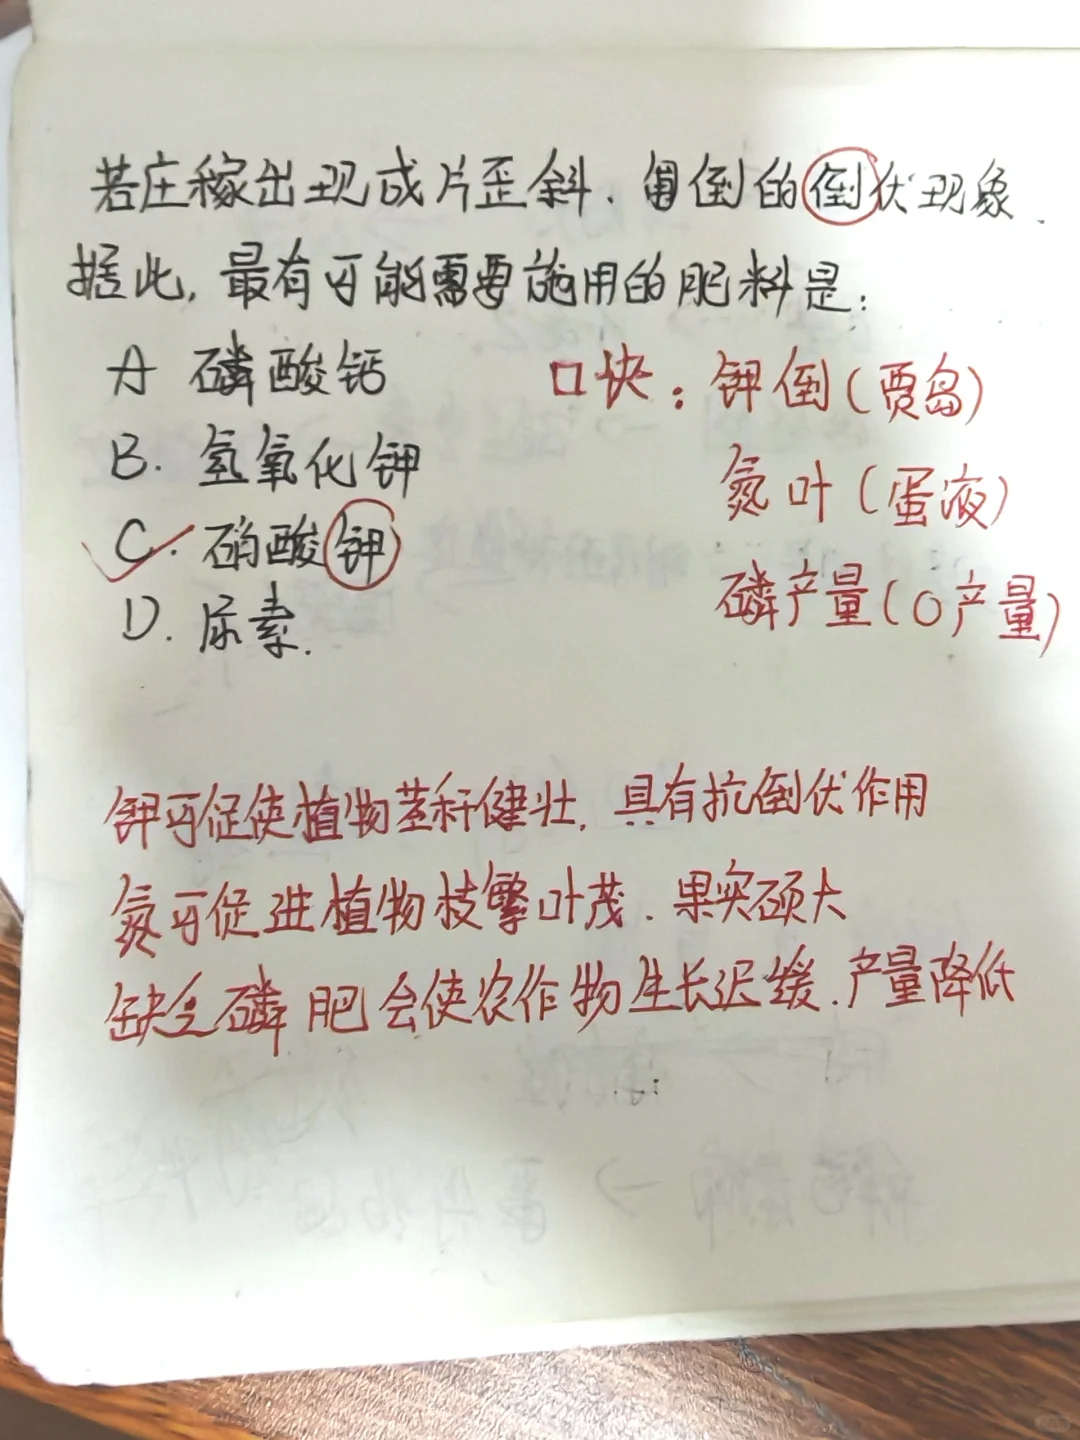 若庄稼出现成片歪斜、匍倒的倒伏现象.
据此,最有可能需要施用的肥料是:
A 磷酸钙
B. 氢氧化钾
C. 硝酸钾
D. 尿素.
口块:钾倒(贾岛)
氮叶(蛋液)
磷产量(0产量)
钾可促使植物茎秆健壮,具有抗倒伏作用
氮可促进植物枝繁叶茂.果实硕大
缺乏磷肥会使农作物生长迟缓.产量降低